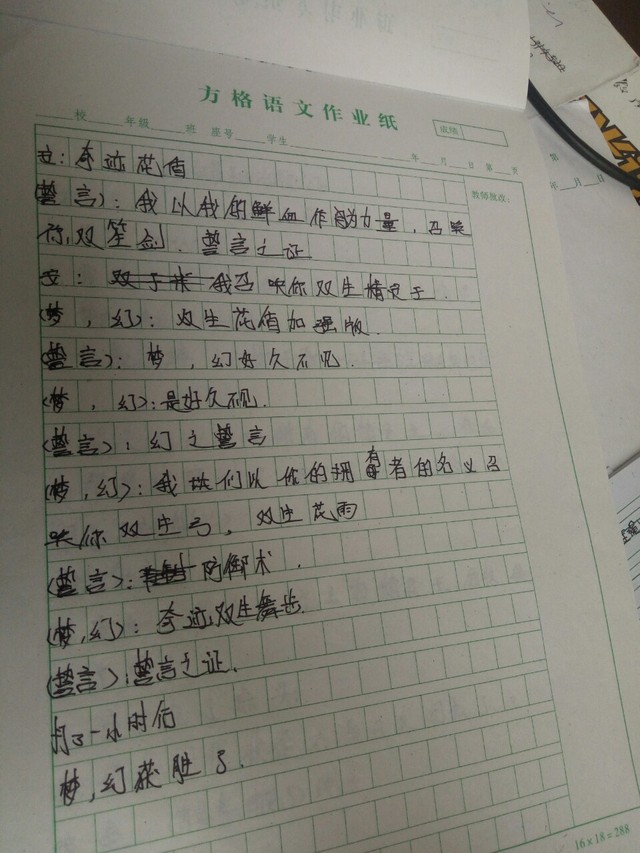 方格语文作业纸
校 年级 班 座号 学生 年 月 日 第 页
成绩
教师批改:
第
年 月 日
:奇迹花值
(誓言):我以我的鲜血作为力量,召唤
你,双笙剑.誓言之证
:我召唤你双生精灵于.
(梦,幻):双生花值加强版.
(誓言):梦,幻好久不见.
(梦,幻):是好久不见.
(誓言):幻之誓言
(梦,幻):我们以你的拥有者的名义召
唤你双生弓,双生花雨
(誓言):防御术.
(梦,幻):奇迹双生舞步.
(誓言):誓言之证.
打了一小时后
梦,幻获胜了.
16×18=288